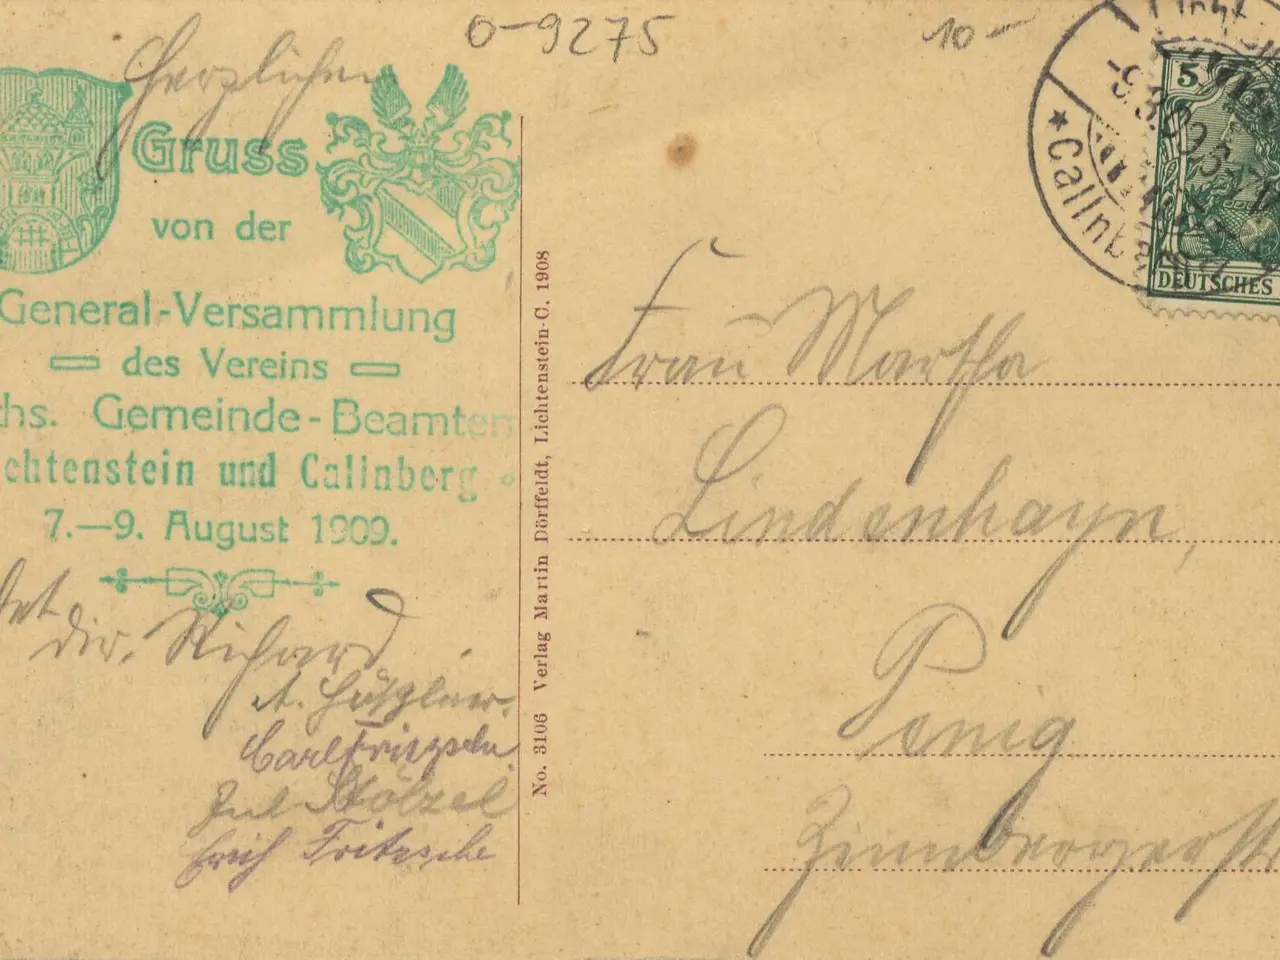 0-9275
10-
Herzlichen
Gruss
von der
General-Versammlung
des Vereins
chs. Gemeinde-Beamten
chtenstein und Callnberg
7.—9. August 1909.
dir. Richard
Carl Fritzsche
Stölzel
Erich Fritzsche
No. 3106 Verlag Martin Dörffeldt, Lichtenstein-C. 1908
★ Callnb
5
DEUTSCHES
Frau Martha
Lindenhayn,
Penig
Zinnbergerstr